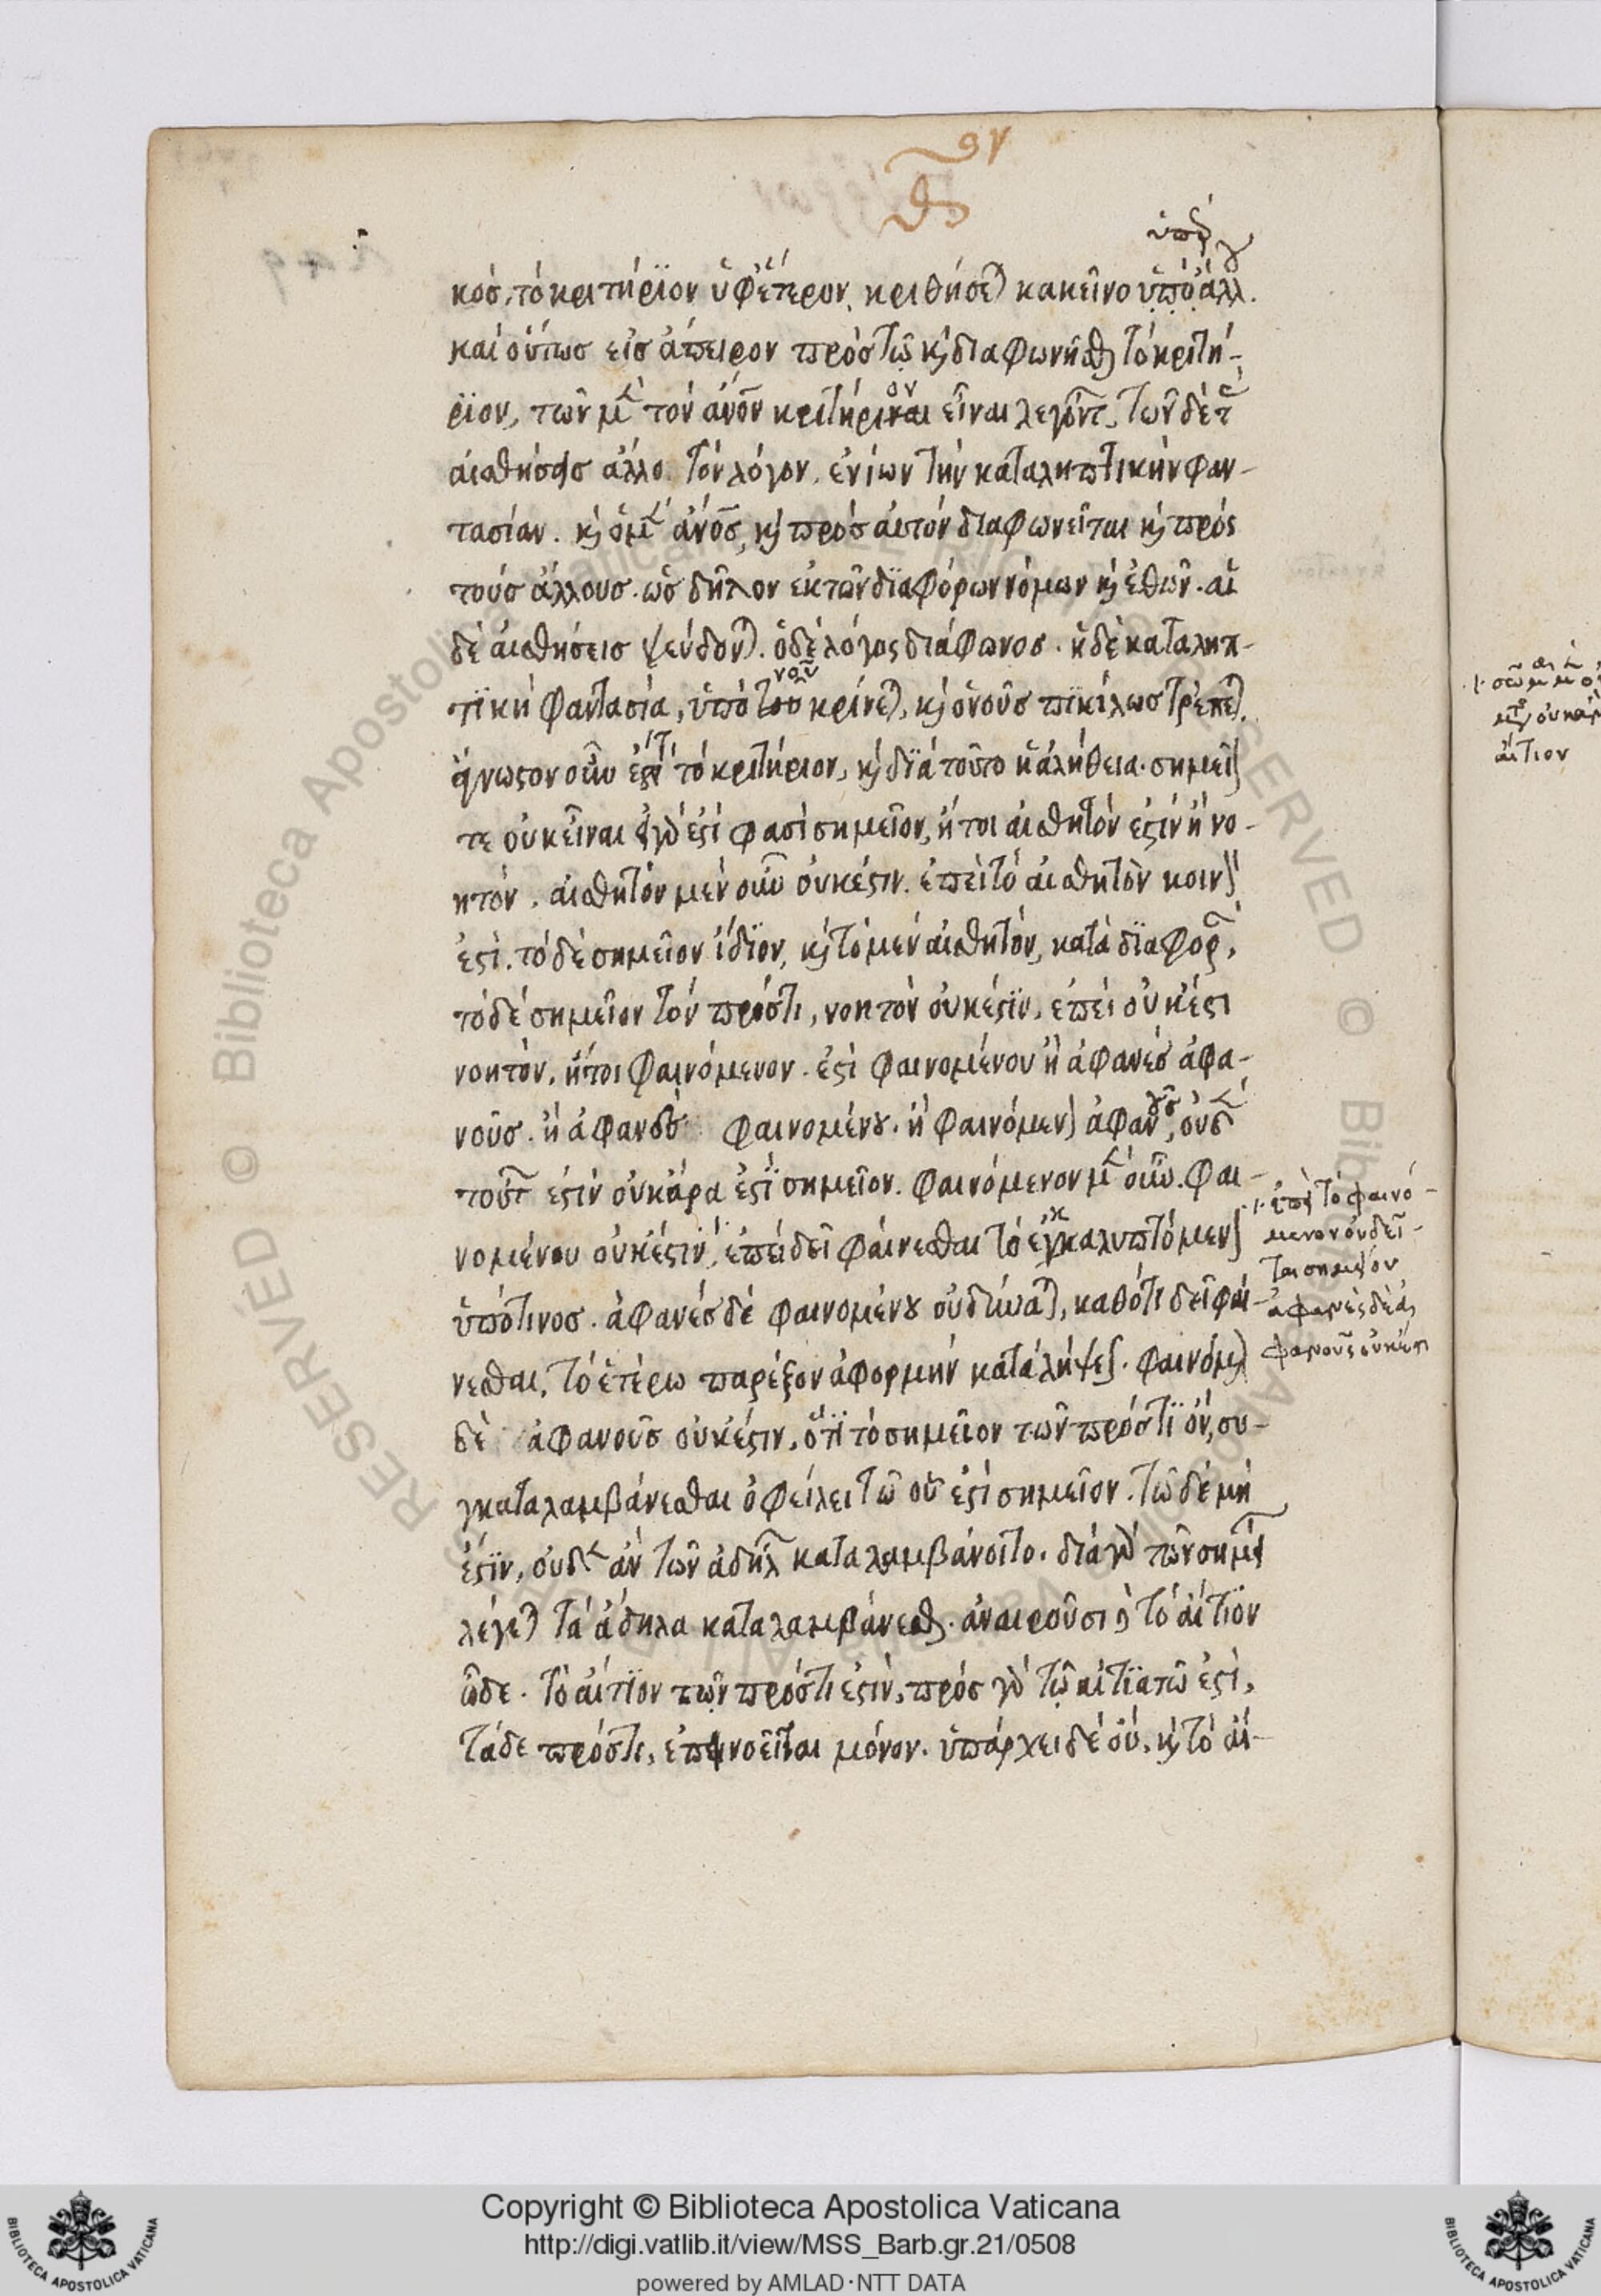 ον
θς
ὑπ
κός, τὸ κριτήριον ὑφ' ἑτέρου κριθήσε κἀκεῖνο ὑπὸ ἀλλ.
καὶ οὕτως εἰς ἄπειρον πρὸς τῷ κ διαφωνεῖσθ τὸ κριτή-
ριον, τῶν μ τὸν ἀνον κριτήριον εἶναι λεγόντ, τῶν δὲ τ
αἰσθήσεις ἄλλο. τὸν λόγον. ἐνίων τὴν καταληπτικὴν φαν-
τασίαν. κ ὁ μ ἀνος, κ πρὸς αὑτὸν διαφωνεῖται κ πρὸς
τοὺς ἄλλους. ὡς δῆλον ἐκ τῶν διαφόρων νόμων κ ἐθῶν. αἱ
δὲ αἰσθήσεις ψεύδον. ὁ δὲ λόγος διάφωνος. ἡ δὲ καταληπ-
νοῦ
τικὴ φαντασία, ὑπὸ του κρίνε, κ ὁ νοῦς ποικίλως τρέπε.
ἄγνωστον οὖν ἐστὶ τὸ κριτήριον, κ διὰ τοῦτο ἡ ἀλήθεια. σημεῖ
τε οὐκ εἶναι εἰ γ ἐστί φασὶ σημεῖον, ἤτοι αἰσθητόν ἐστιν ἢ νο-
ητόν. αἰσθητὸν μὲν οὖν οὐκ ἔστιν. ἐπεὶ τὸ αἰσθητὸν κοιν
ἐστί. τὸ δὲ σημεῖον ἴδιον, κ τὸ μὲν αἰσθητόν, κατὰ διαφορ,
τὸ δὲ σημεῖον τῶν πρός τι, νοητὸν οὐκ ἔστιν, ἐπεὶ οὐκ ἔστι
νοητόν, ἤτοι φαινόμενον. ἐστὶ φαινομένου ἢ ἀφανὲς ἀφα-
νοῦς. ἢ ἀφανὲς φαινομένου. ἢ φαινόμεν ἀφανοῦς, οὐδ
τούτ ἐστιν οὐκ ἄρα ἐστὶ σημεῖον. φαινόμενον μ οὖν. φαι-
νομένου οὐκ ἔστιν, ἐπεὶ δεῖ φαίνεσθαι τὸ ἐκκαλυπτόμεν
ὑπό τινος. ἀφανὲς δὲ φαινομένου οὐ δύνα, καθότι δεῖ φαί-
νεσθαι, τὸ ἑτέρω παρέξον ἀφορμὴν καταλήψε. φαινόμ
δὲ ἀφανοῦς οὐκ ἔστιν, ὅτι τὸ σημεῖον τῶν πρός τι ὄν, συ-
γκαταλαμβάνεσθαι ὀφείλει τῷ οὗ ἐστὶ σημεῖον. τῷ δὲ μὴ
ἔστιν, οὐδ ἂν τῶν ἀδήλ καταλαμβάνοιτο. διὰ γ τῶν σημ
λέγε τὰ ἄδηλα καταλαμβάνεσθ. ἀναιροῦσι δ τὸ αἴτιον
ὧδε. τὸ αἴτιον τῶν πρός τι ἐστιν, πρὸς γ τῷ αἰτιατῷ ἐστί,
τὰ δὲ πρός τι, ἐπινοεῖται μόνον. ὑπάρχει δὲ οὔ, κ τὸ αἴ-
ἐπεὶ τὸ φαινό-
μενον οὐ δεῖ-
ται σημεῖον
ἀφανὲς δὲ ἀ-
φανοῦς οὐκ ἔστι
αἴτιον
Copyright © Biblioteca Apostolica Vaticana
http://digi.vatlib.it/view/MSS_Barb.gr.21/0508
powered by AMLAD·NTT DATA
BIBLIOTECA APOSTOLICA VATICANA
BIBLIOTECA APOSTOLICA VATICANA